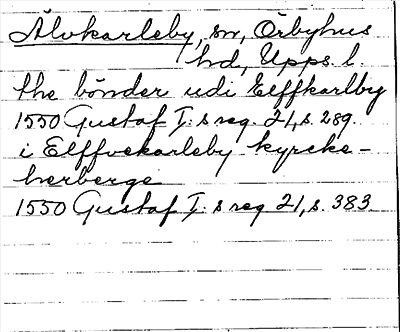 Älvkarleby, sn, Örbyhus
hd, Upps. l.
the bönder udi Elffkarlby
1550 Gustaf I: s reg. 21, s. 289.
i Elffvekarleby kyrcke-
herberge
1550 Gustaf I: s reg 21, s. 383.